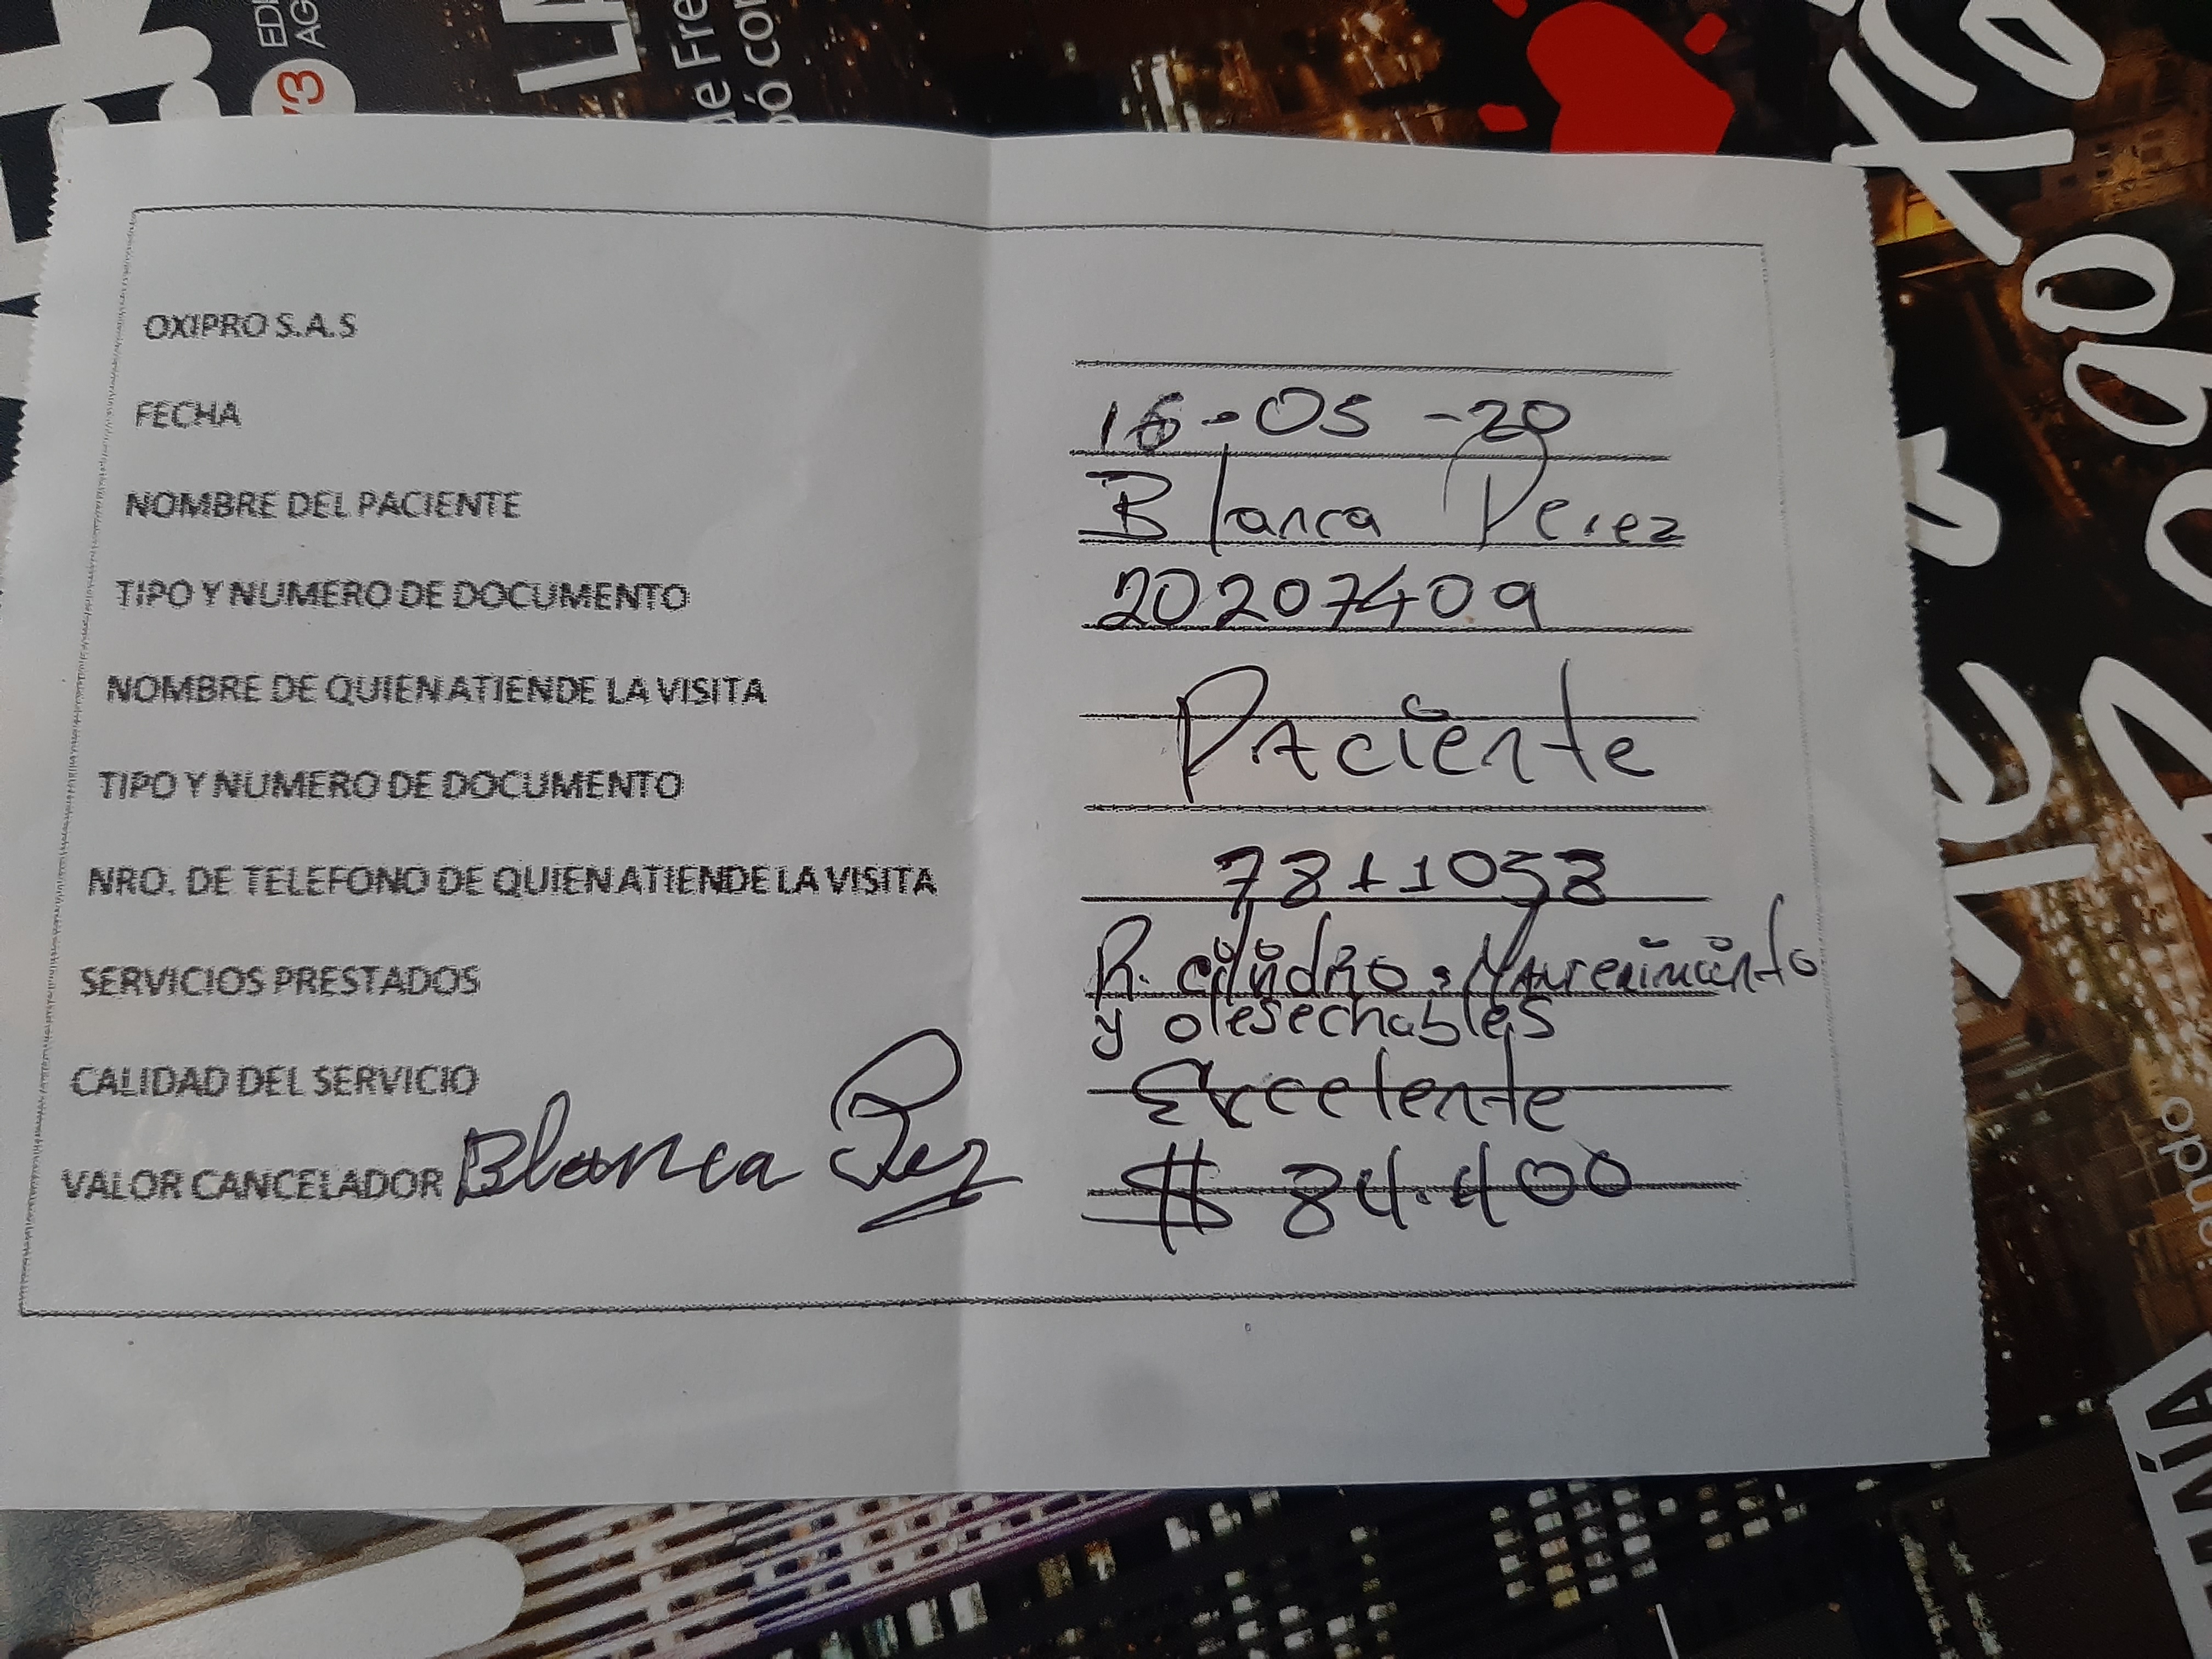 OXIPRO S.A.S
FECHA 16-05-20
NOMBRE DEL PACIENTE Blanca Perez
TIPO Y NUMERO DE DOCUMENTO 20207409
NOMBRE DE QUIEN ATIENDE LA VISITA Paciente
TIPO Y NUMERO DE DOCUMENTO
NRO. DE TELEFONO DE QUIEN ATIENDE LA VISITA
SERVICIOS PRESTADOS R. cilindro
y desechables
CALIDAD DEL SERVICIO Excelente
VALOR CANCELADOR Blanca $ 84.400